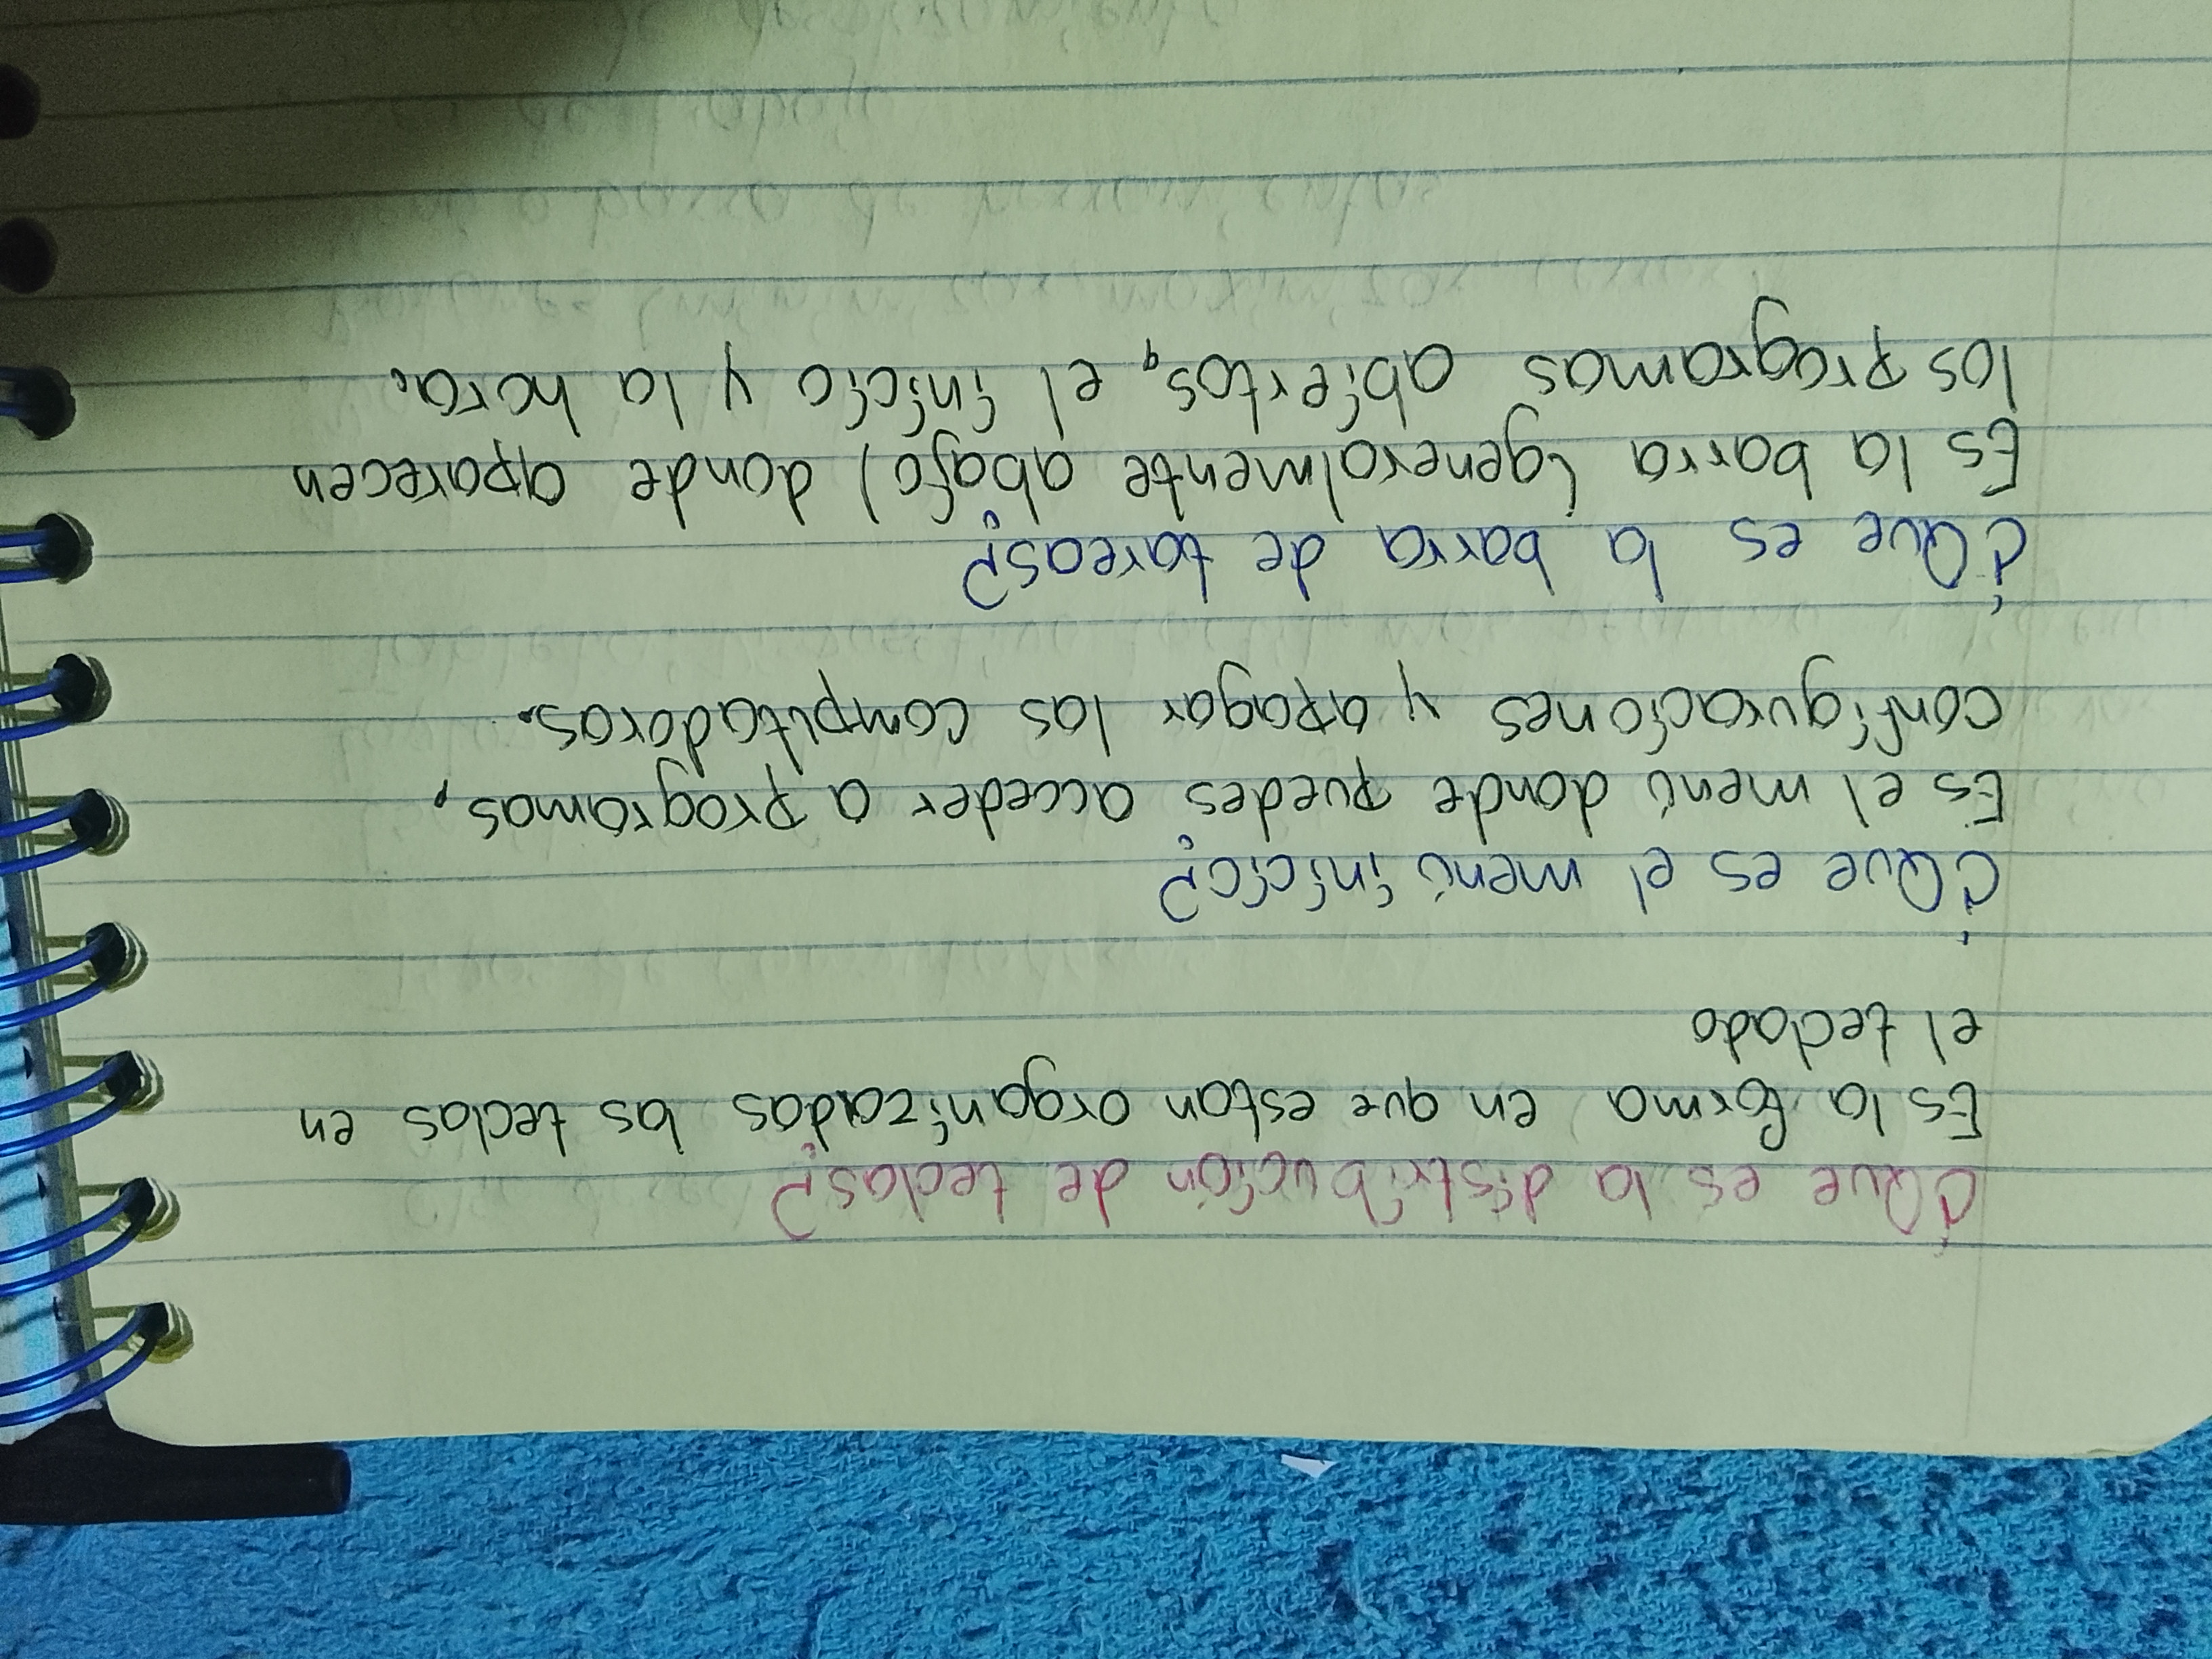 ¿Que es la distribución de teclas?
Es la forma en que estan organizadas las teclas en
el teclado
¿Que es el menú inicio?
Es el menú donde puedes acceder a programas,
configuraciones y apagar las computadoras.
¿Que es la barra de tareas?
Es la barra (generalmente abajo) donde aparecen
los programas abiertos, el inicio y la hora.